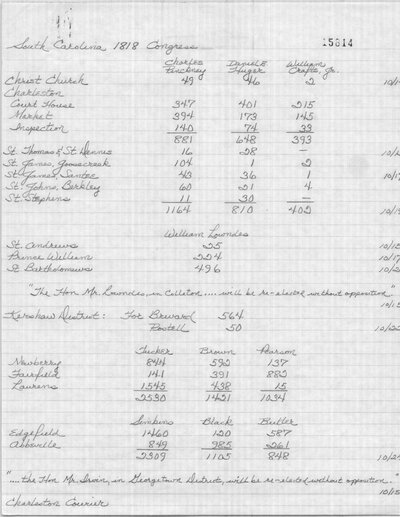 South Carolina 1818 Congress 15814
Charles Pinckney Daniel E Huger William Crafts, Jr.
Christ Church 49 46 2 10/1
Charleston
Court House 347 401 215
Market 394 173 145
Inspection 140 74 33
881 648 393
St. Thomas & St Dennis 16 28 – 10/
St. James, Goosecreek 104 1 2
St. James, Santee 43 36 1 10/1
St. Johns, Berkley 60 21 4
St. Stephens 11 30 –
1164 810 402 10/1
William Lowndes
St. Andrews 25 10/15
Prince William 224 10/17
St Bartholomews 496 10/2
"The Hon Mr. Lowndes, in Colleton .... will be re-elected without opposition."
10/15
Kershaw District: For Brevard 564
Postell 50 10/22
Tucker Brown Pearson
Newberry 844 592 137
Fairfield 141 391 882
Laurens 1545 438 15
2530 1421 1034
Simkins Black Butler
Edgefield 1460 120 587
Abbeville 849 985 261
2309 1105 848 10/2
".... the Hon Mr. Irvin, in Georgetown District, will be re-elected without opposition."
10/15
Charleston Courier